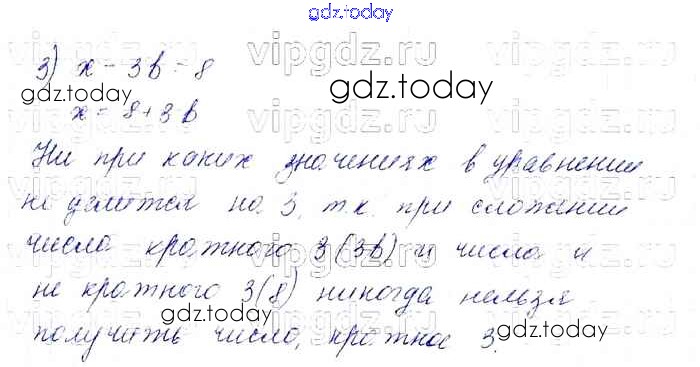 gdz.today
vipgdz.ru vipgdz.ru
3) x - 3b = 8
gdz.today gdz.today
x = 8 + 3b
Ни при каких значениях в уравнении
не делится на 3, т.к. при сложении
числа кратного 3 (3b) и числа и
не кратного 3 (8) никогда нельзя
gdz.today
получить число, кратное 3.
gdz.today